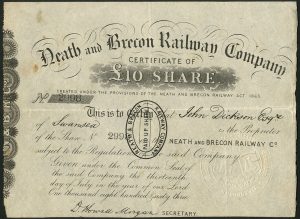 Neath and Brecon Railway Company
CERTIFICATE OF
£10 SHARE
CREATED UNDER THE PROVISIONS OF THE NEATH AND BRECON RAILWAY ACT 1863
No 2998
This is to certify that John Dickson Esqre
of Swansea is the Proprietor
of the Share No 2998 NEATH AND BRECON RAILWAY Co
subject to the Regulations of the said Company
Given under the Common Seal of
the said Company the thirteenth
day of July in the year of our Lord
One thousand eight hundred & sixty three
D. Howell Morgan SECRETARY